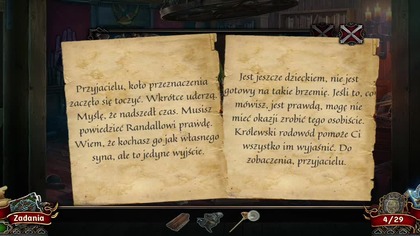 Przyjacielu, koło przeznaczenia
zaczęło się toczyć. Wkrótce uderzą.
Myślę, że nadszedł czas. Musisz
powiedzieć Randallowi prawdę.
Wiem, że kochasz go jak własnego
syna, ale to jedyne wyjście.
Jest jeszcze dzieckiem, nie jest
gotowy na takie brzemię. Jeśli to, co
mówisz, jest prawdą, mogę nie
mieć okazji zrobić tego osobiście.
Królewski rodowód pomoże Ci
wszystko im wyjaśnić. Do
zobaczenia, przyjacielu.
Zadania
4/29